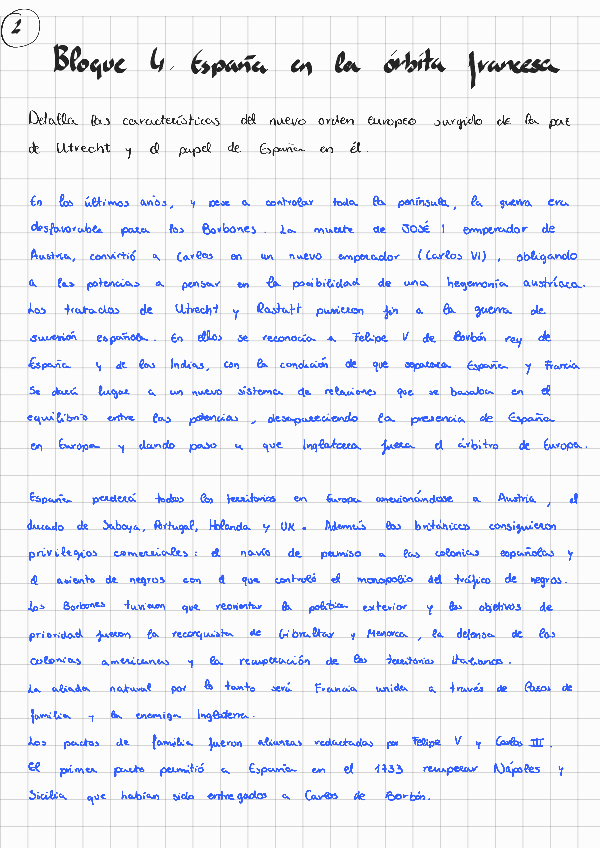 1
Bloque 4. España en la órbita francesa
Detalla las características del nuevo orden Europeo surgido de la paz
de Utrecht y el papel de España en él.
En los últimos años, y pese a controlar toda la península, la guerra era
desfavorable para los Borbones. La muerte de JOSÉ I emperador de
Austria, convirtió a Carlos en un nuevo emperador (Carlos VI), obligando
a las potencias a pensar en la posibilidad de una hegemonía austríaca.
Los tratados de Utrecht y Rastatt pusieron fin a la guerra de
sucesión española. En ellos se reconocía a Felipe V de Borbón rey de
España y de las Indias, con la condición de que separara España y Francia
Se dará lugar a un nuevo sistema de relaciones que se basaba en el
equilibrio entre las potencias, desapareciendo la presencia de España
en Europa y dando paso a que Inglaterra fuera el árbitro de Europa.
España perderá todos los territorios en Europa anexionándose a Austria, el
ducado de Saboya, Portugal, Holanda y UK. Además los británicos consiguieron
privilegios comerciales: el navío de permiso a las colonias españolas y
el asiento de negros con el que controló el monopolio del tráfico de negros.
Los Borbones tuvieron que reorientar la política exterior y los objetivos de
prioridad fueron la reconquista de Gibraltar y Menorca, la defensa de las
colonias americanas y la recuperación de los territorios italianos.
La aliada natural por lo tanto será Francia unida a través de Pazos de
familia y la enemiga Inglaterra.
Los pactos de familia fueron alianzas redactadas por Felipe V y Carlos III.
El primer pacto permitió a España en el 1733 recuperar Nápoles y
Sicilia que habían sido entregados a Carlos de Borbón.